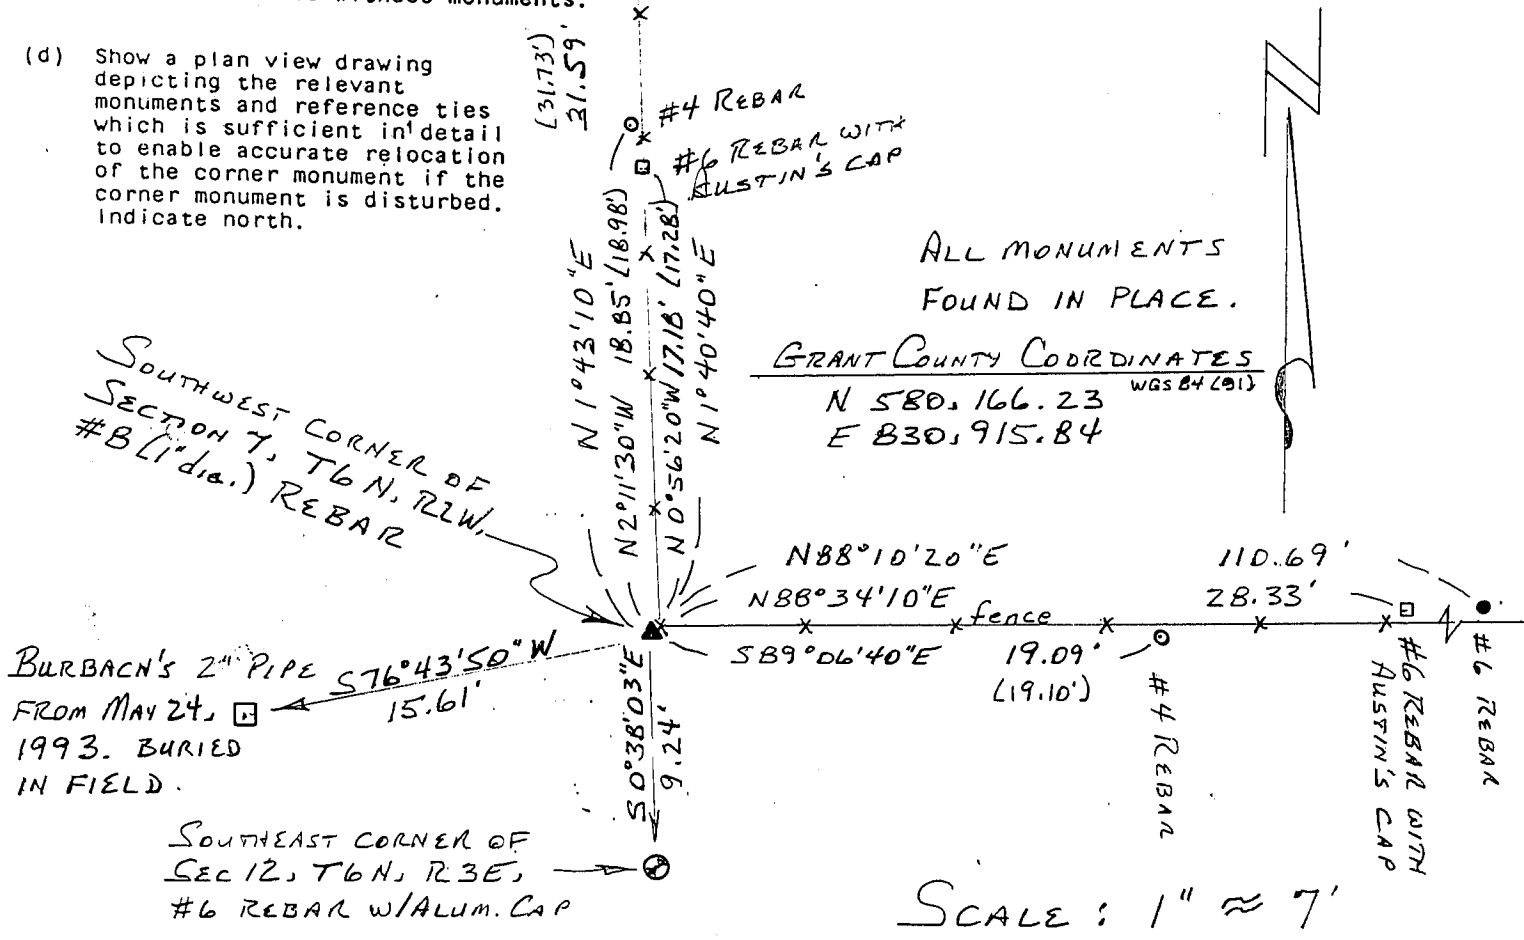 monuments.
(d) Show a plan view drawing
depicting the relevant
monuments and reference ties
which is sufficient in detail
to enable accurate relocation
of the corner monument if the
corner monument is disturbed.
Indicate north.
(31.73')
31.59'
#4 REBAR
#6 REBAR WITH
AUSTIN'S CAP
N 1°43'10"E
N2°11'30"W 18.85' (18.98')
N0°56'20"W 17.18' (17.28')
N1°40'40"E
ALL MONUMENTS
FOUND IN PLACE.
GRANT COUNTY COORDINATES
WGS 84 (91)
N 580,166.23
E 830,915.84
SOUTHWEST CORNER OF
SECTION 7, T6N, R2W,
#8 (1"dia.) REBAR
N88°10'20"E
110.69'
N88°34'10"E
28.33'
fence
S89°06'40"E
19.09'
(19.10')
#4 REBAR
#6 REBAR WITH
AUSTIN'S CAP
#6 REBAR
BURBACH'S 2" PIPE
FROM MAY 24,
1993. BURIED
IN FIELD.
S76°43'50"W
15.61'
S0°38'03"E
9.24'
SOUTHEAST CORNER OF
SEC 12, T6N, R3E,
#6 REBAR W/ALUM. CAP
SCALE: 1" ≈ 7'